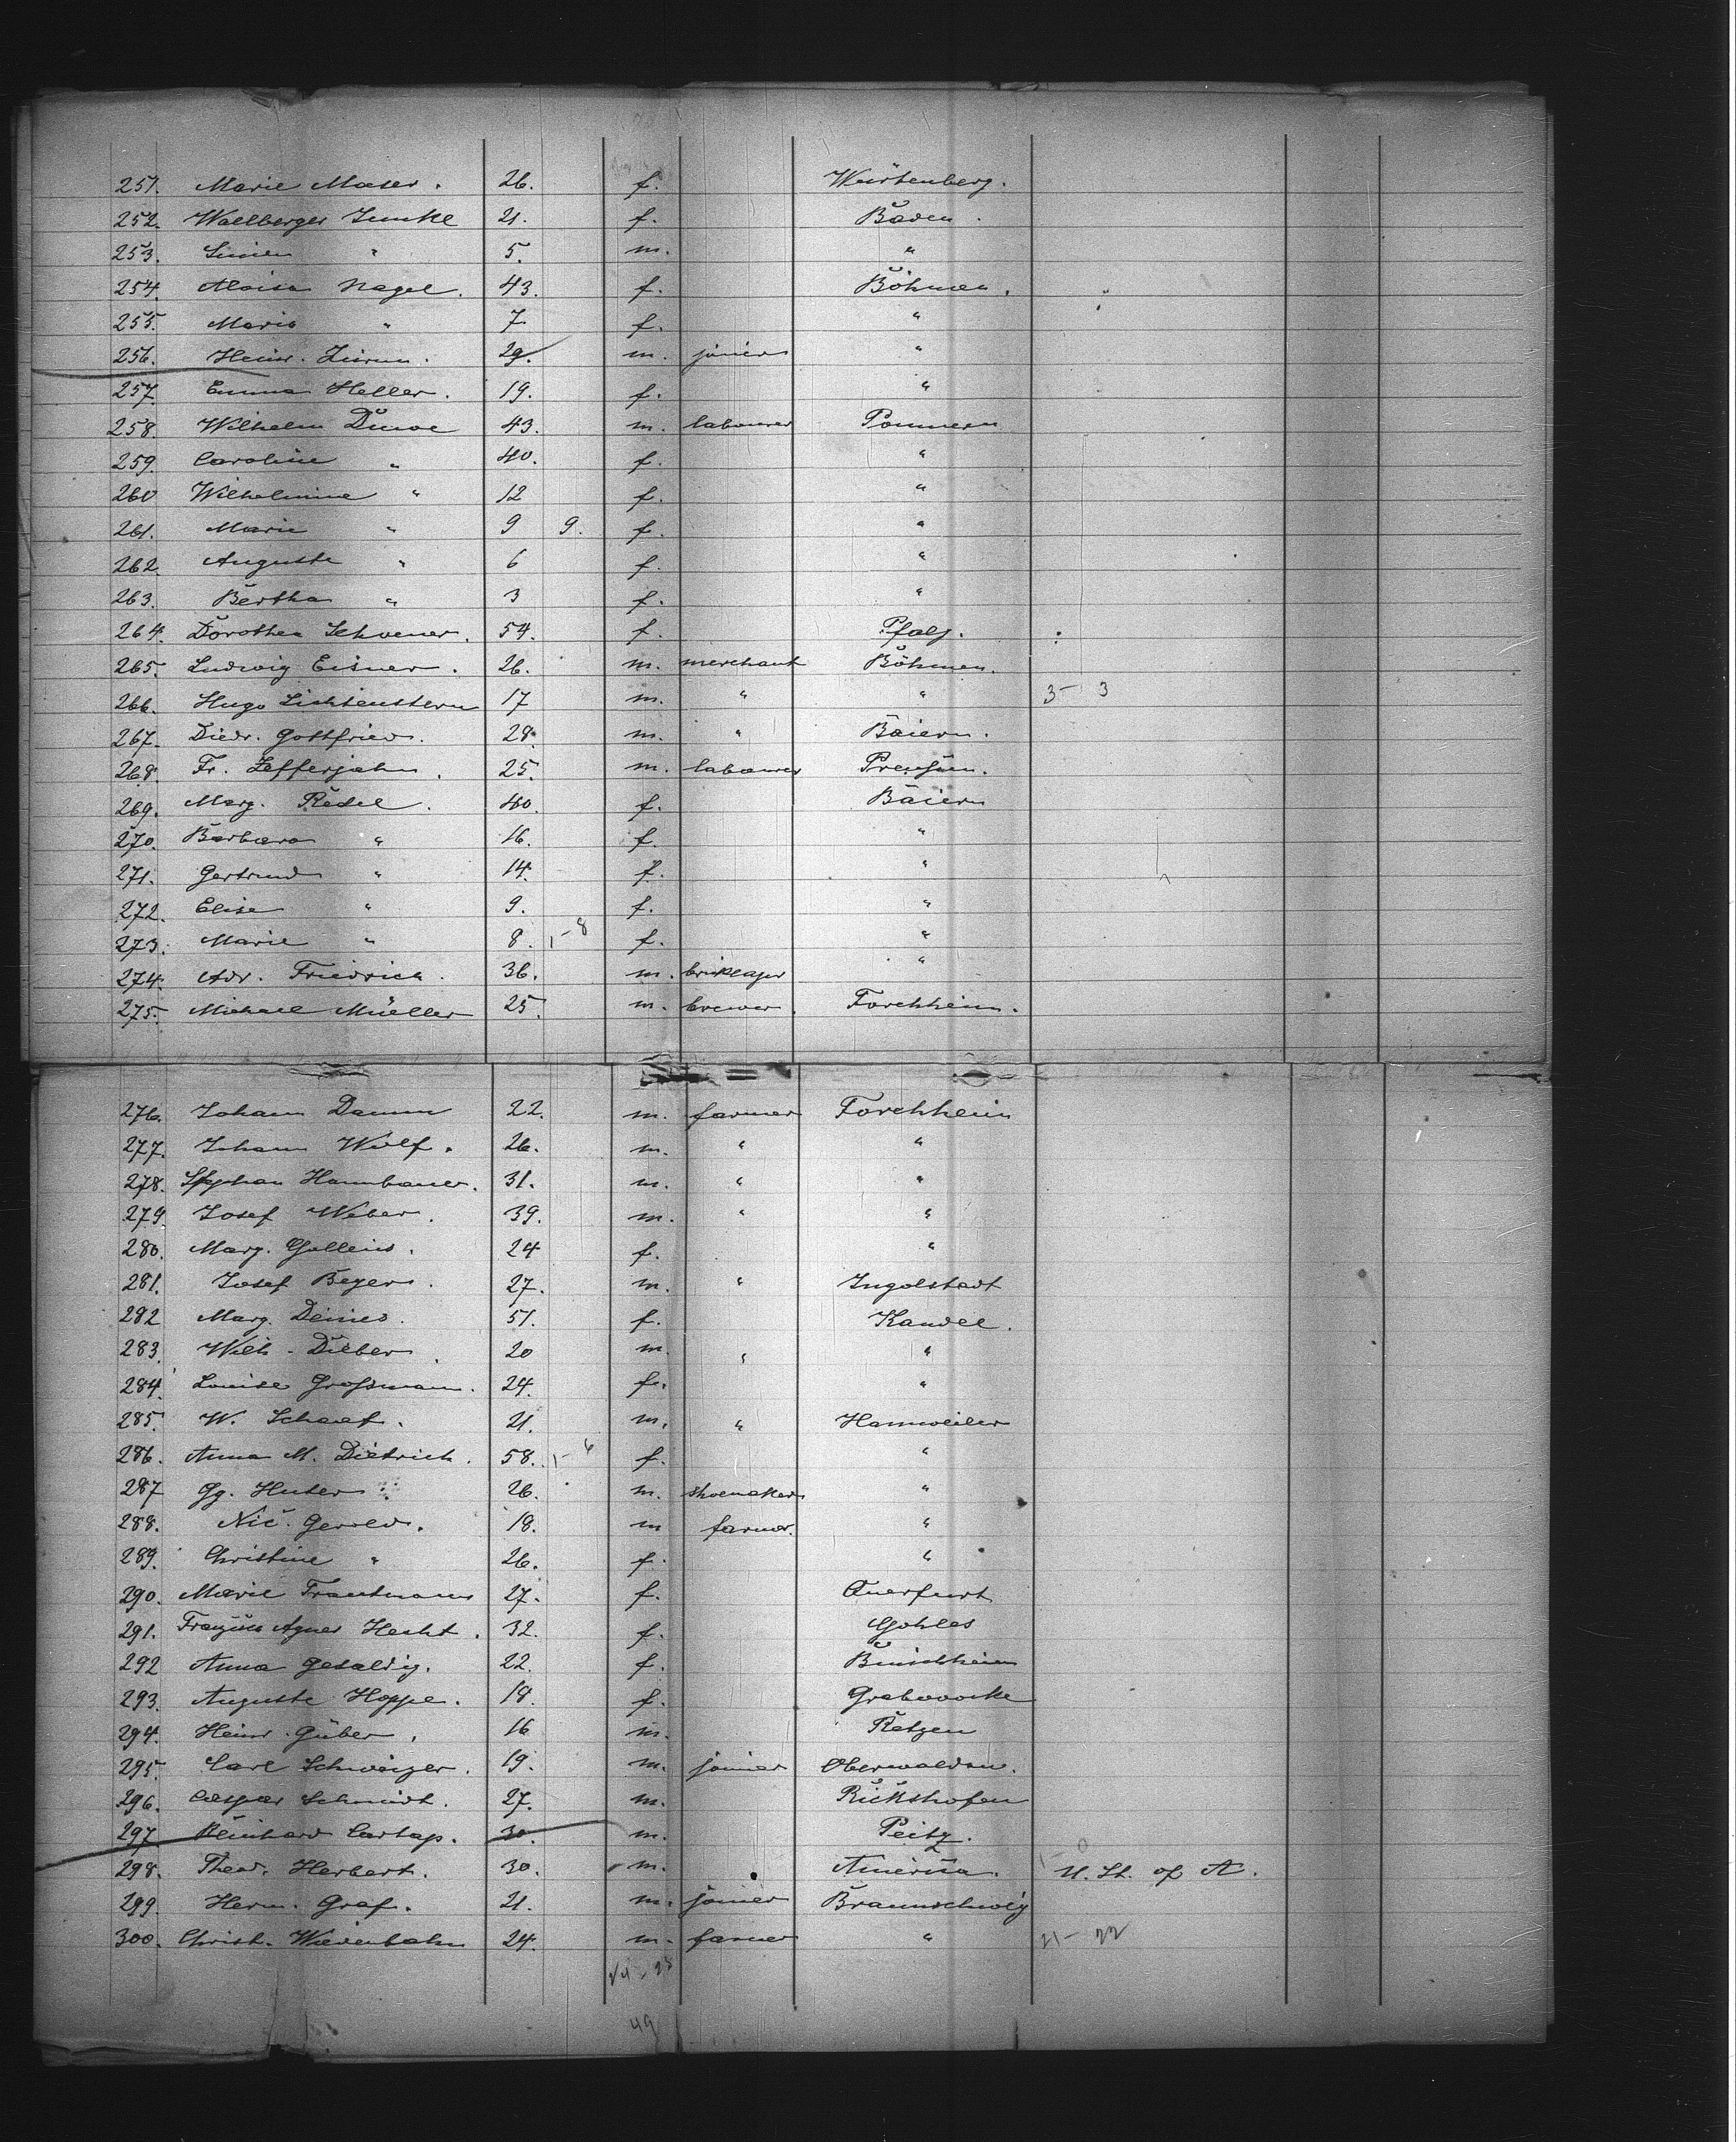 251. Marie Moser. 26. f. Würtenberg.
252. Wallberger Junke 21. f. Baden.
253. " 5. m. "
254. Aloisia Nagel. 43. f. Böhmen.
255. Maria " 7. f. "
256. Heinr. 29. m. joiner "
257. Emma Heller. 19. f. "
258. Wilhelm Duwe 43. m. labourer Pommern
259. Caroline " 40. f. "
260 Wilhelmine " 12 f. "
261. Marie " 9 9. f. "
262. Auguste " 6 f. "
263. Bertha " 3 f. "
264. Dorothea Schoener. 54. f. Pfalz.
265. Ludwig Eisner. 26. m. merchant Böhmen.
266. Hugo Lichtenstern 17 m. " " 3 - 3
267. Diedr. Gottfried. 28. m. " Baiern.
268. Fr. Zefferjahn. 25. m. labourer Preußen.
269. Marg. Redel. 40. f. Baiern
270. Barbara " 16. f. "
271. Gertrud " 14. f. "
272. Elise " 9. f. "
273. Marie " 8. 1 - 8 f. "
274. Adr. Friedrich. 36. m. bricklayer "
275. Michael Müller 25. m. brewer. Forchheim.
276. Johann Damm 22. m. farmer Forchheim
277. Johann Wolf. 26. m. " "
278. Stephan Hannbauer. 31. m. " "
279. Josef Weber. 39. m. " "
280. Marg. 24 f. "
281. Josef Beyer. 27. m. " Ingolstadt
282 Marg. 51. f. Kandel.
283. Wilh. Dieber. 20 m. " "
284. Louise Großmann. 24. f. "
285. W. Scharf. 21. m. " Hannweiler
286. Anna M. Dietrich. 58. 1 - 6 f. "
287 Gg. Huber 26. m. shoemaker "
288. Nic. Gerold. 18. m farmer. "
289. Christine " 26. f. "
290. Marie Trautmann 27. f. Querfurt
291. Agnes Hecht. 32. f. Gohles
292 Anna 22. f.
293. Auguste Hoppe. 18. f.
294. Heinr. Güber. 16 m. Retzen
295. Carl Schweizer. 19. m. joiner
296. Caspar Schmidt. 27. m. Rickshofen
297 Reinhard Cartap. 30. m. Peitz.
298. Theod. Herbert. 30. m. America. 1 - 0 U. St. of A.
299. Herm. Graf. 21. m. joiner Braunschweig
300. Christ. Wiedenbahn 24. m. farmer " 21 - 22
24 - 25
49